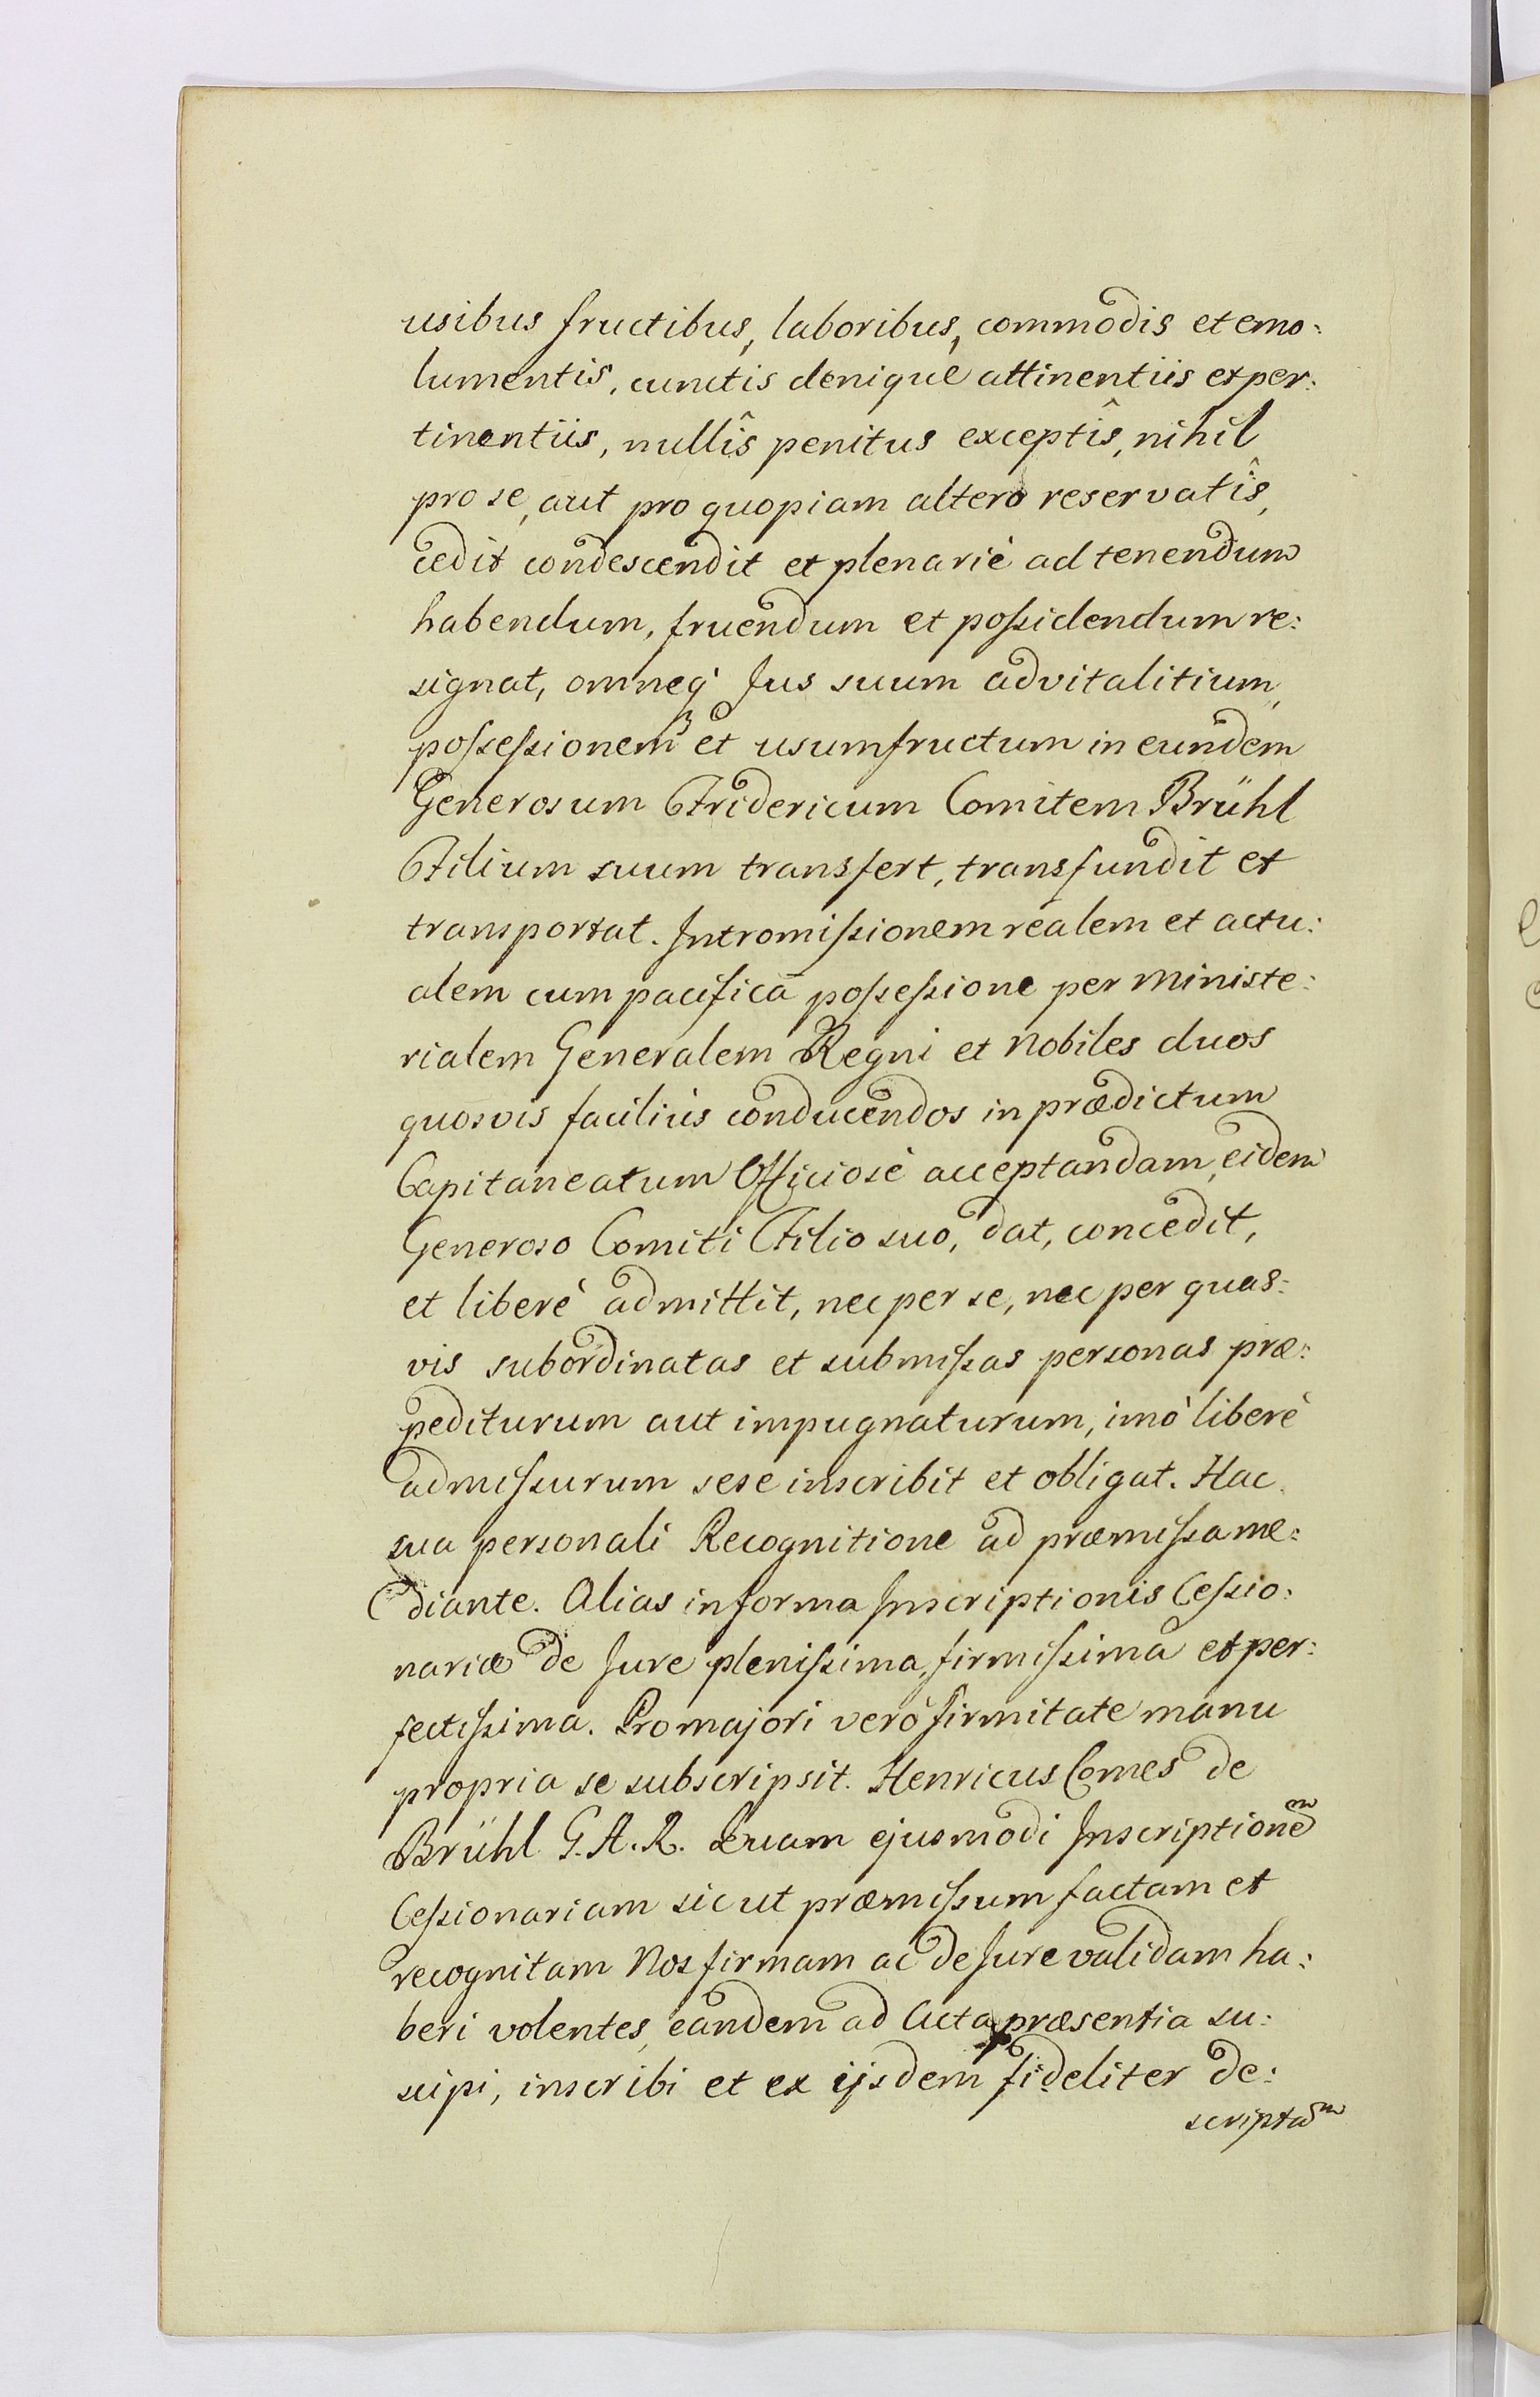 usibus fructibus, laboribus, commodis et emo:
lumentis, cunctis denique attinentiis et per:
tinentiis, nullîs penitus exceptîs, nihil
pro se, aut pro quopiam altero reservatîs,
cedit condescendit et plenariè ad tenendum
habendum, fruendum et possidendum re:
signat, omneq' Jus suum advitalitium,
possessionem et usumfructum in eundem
Generosum Fridericum Comitem Brühl
Filium suum transfert, transfundit et
transportat. Intromissionem realem et actu:
alem cum pacificâ possessione per Ministe:
rialem Generalem Regni et Nobiles duos
quosvis faciliùs conducendos in prædictum
Capitaneatum Officiosè acceptandam, eidem
Generoso Comiti Filio suo, dat, concedit,
et liberè admittit, nec per se, nec per quas:
vis subordinatas et submissas personas præ:
pediturum aut impugnaturum, imò liberè
admissurum sese inscribit et obligat. Hac
sua personali Recognitione ad præmissa me:
diante. Alias in forma Inscriptionis Cessio:
nariæ de Jure plenissima, firmissima et per:
fectissima. Pro majori verò firmitate manu
propria se subscripsit. Henricus Comes de
Brühl G. A. R. Quam ejusmodi Inscriptionem
Cessionariam sic ut præmissum factam et
recognitam Nos firmam ac de Jure validam ha:
beri volentes, eandem ad Acta præsentia su:
scipi, inscribi et ex ijsdem fideliter de:
scriptam